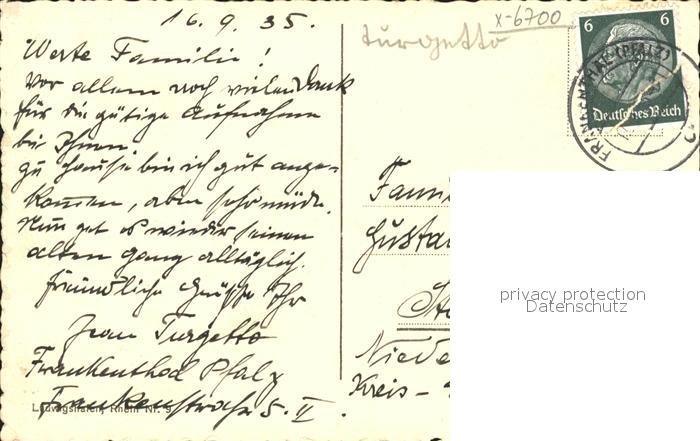 16. 9. 35.
Werte Familie!
Vor allem noch vielen Dank
für die gütige Aufnahme
bei Ihnen.
zu Hause bin ich gut ange-
kommen, aber sehr müde.
Nun geht es wieder seinen
alten Gang alltäglich.
Freundliche Grüße Ihr
Jean Turgetto
Frankenthal Pfalz
Frankenstraße 5. II.
Ludwigshafen, Rhein Nr. 9
turgetto
x-6700
6 6
Deutsches Reich
FRANKENTHAL (PFALZ)
Gusta
Niede
Kreis-
privacy protection
Datenschutz